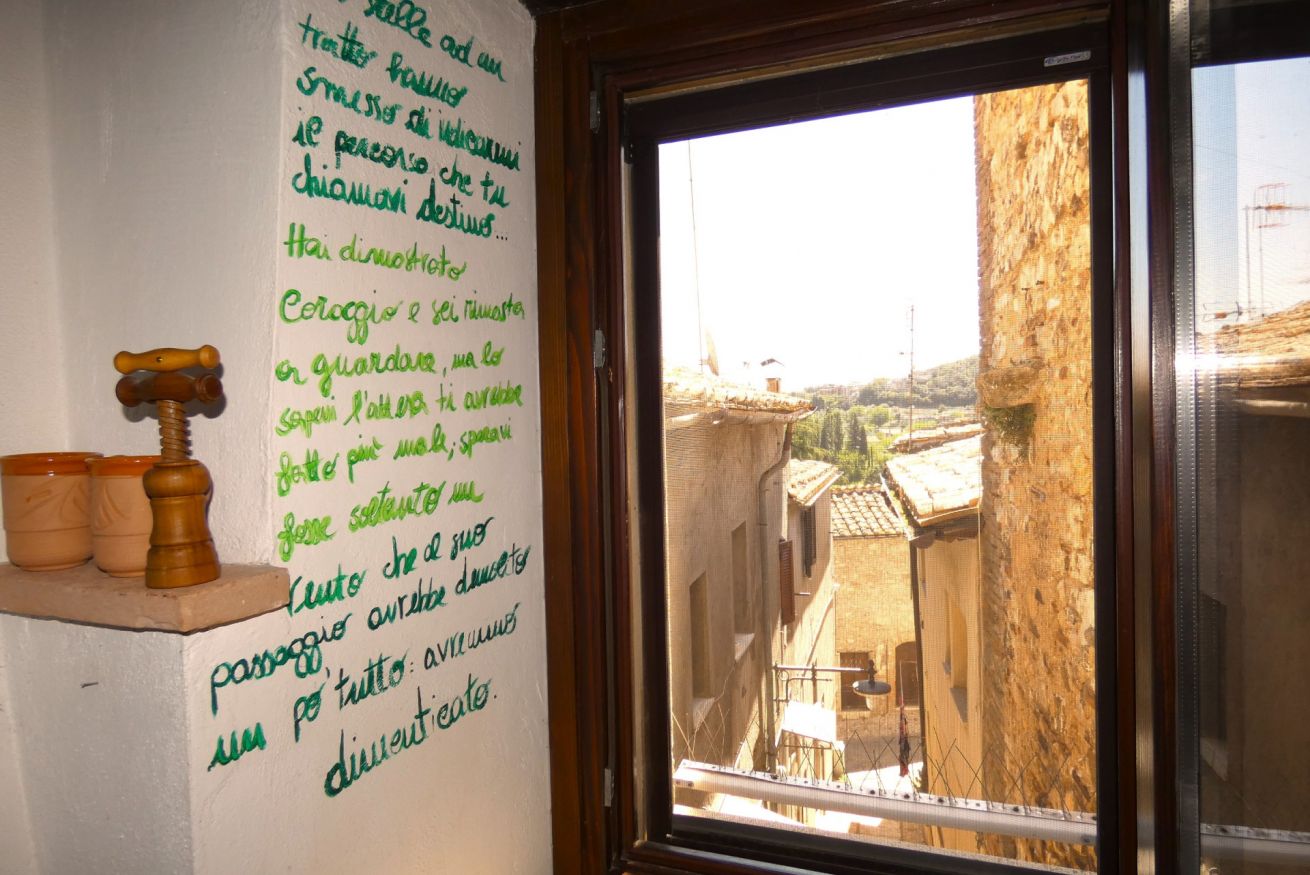 stelle ad un
tratto hanno
smesso di indicarmi
il percorso che tu
chiamavi destino...
Hai dimostrato
Coraggio e sei rimasta
a guardare, ma lo
sapevi l'attesa ti avrebbe
fatto più male; speravi
fosse soltanto un
Vento che al suo
passaggio avrebbe demolito
un po' tutto: avremmo
dimenticato.